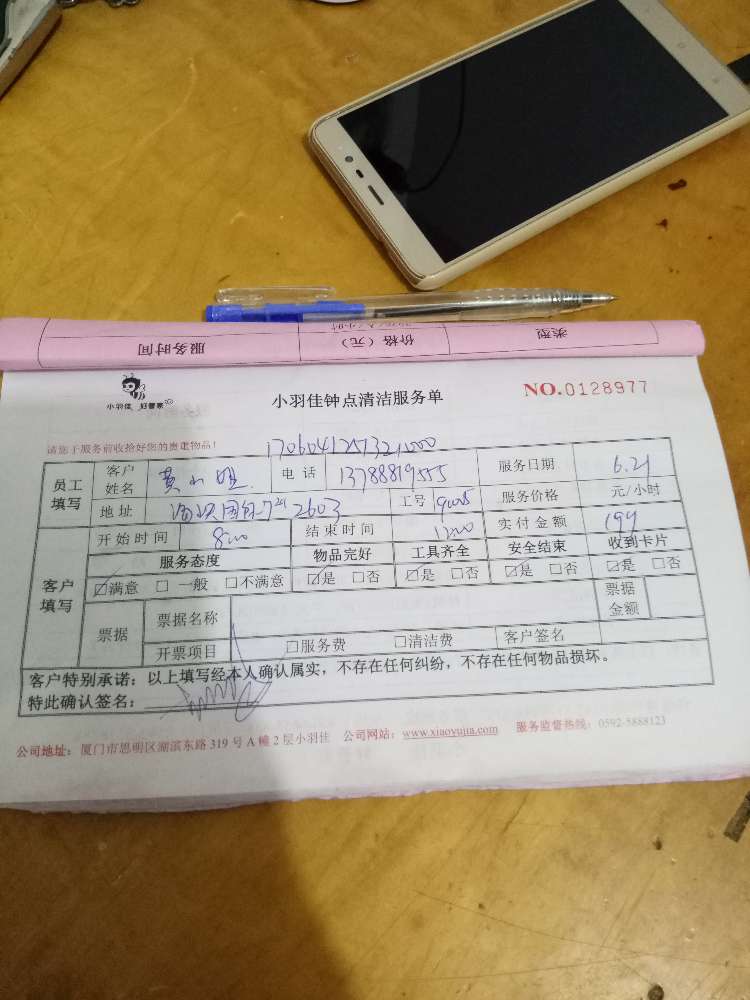 服务时间 价格（元） 类型
小羽佳 好管家
小羽佳钟点清洁服务单
NO.0128977
请您于服务前收拾好您的贵重物品！
员工填写 客户姓名 黄小姐 电话 13788819555 服务日期 6.21
地址 2603 工号 服务价格 元/小时
客户填写 开始时间 8:00 结束时间 12:00 实付金额 199
服务态度 物品完好 工具齐全 安全结束 收到卡片
☑满意 □一般 □不满意 ☑是 □否 ☑是 □否 ☑是 □否 ☑是 □否
票据 票据名称 票据金额
开票项目 □服务费 □清洁费 客户签名
客户特别承诺：以上填写经本人确认属实，不存在任何纠纷，不存在任何物品损坏。
特此确认签名：
公司地址：厦门市思明区湖滨东路 319 号 A 幢 2 层小羽佳 公司网站：www.xiaoyujia.com 服务监督热线：0592-5888123